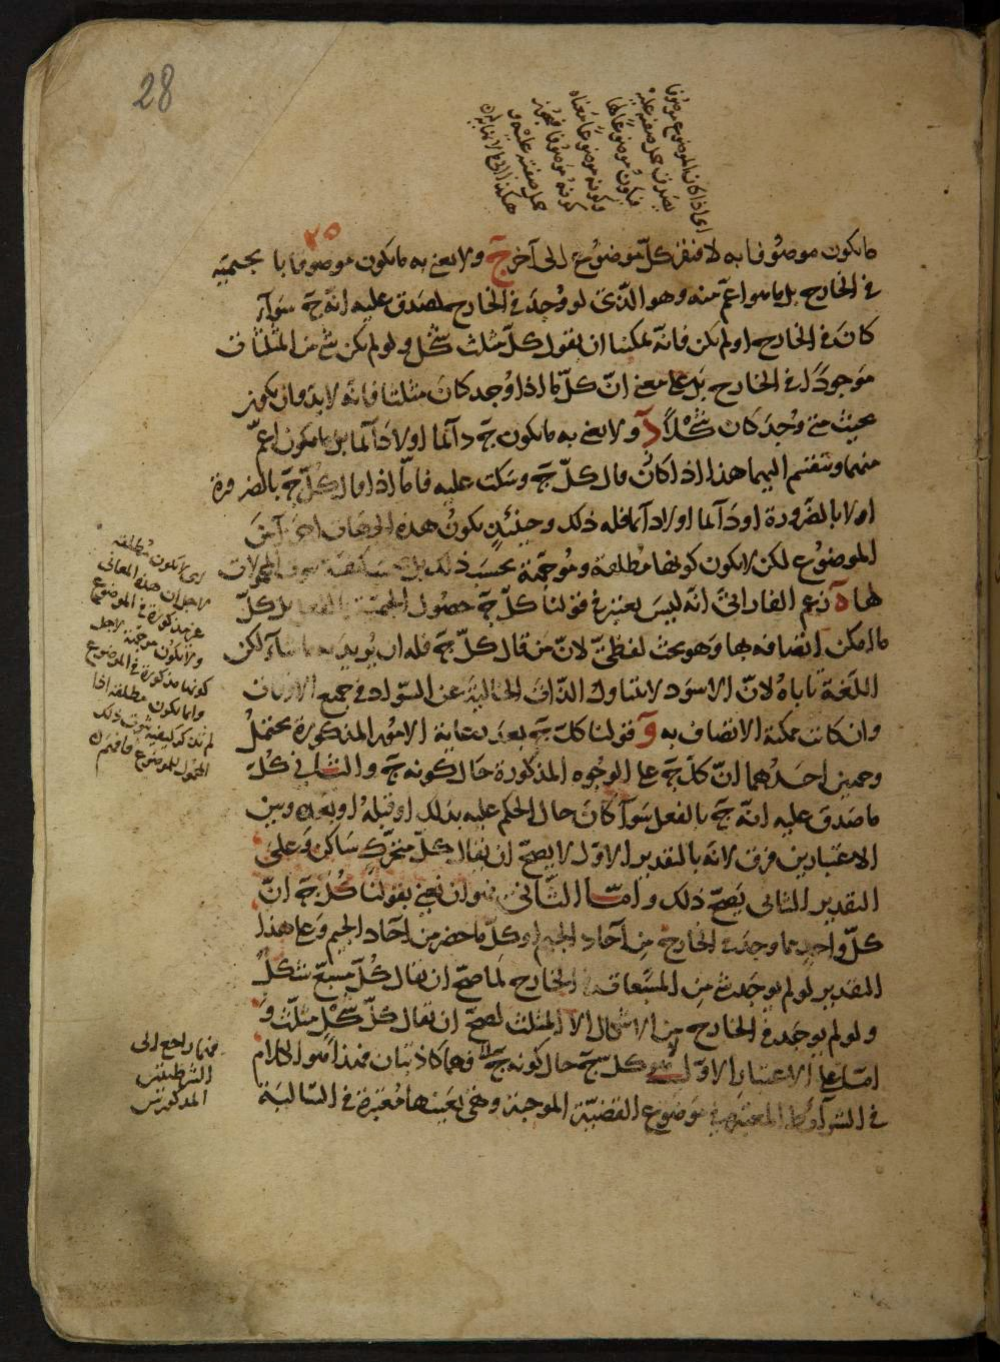 28
اى اذا كان الموضوع موصوفا
يصدق حمل صفته عليه
فيكون موضوعا لها
وكونه موضوعا معناه
كونه موصوفا فيجوز
حمل صفته عليه و
هكذا الى ما لا يتناهى
٢٥
ما يكون موصوفا به لافتقر كل موضوع الى آخر جَ ولا نعنى به ما يكون موصوفا با لجيمية
فى الخارج بل ما هو اعمّ منه وهو الذى لو وُجدَ فى الخارج لصدق عليه انّه جَ سوآء
كانَ فى الخارج او لم يكن فانّه يمكننا ان نقول كلّ مثلث شكل ولو لم يكن شئ من المثلثات
موجوداً فى الخارج بل على معنى انّ كلّ ما اذا وُجد كان مثلثا فانّه لا بد وان يكون
بحيث متى وُجدَ كان شكلاً دَ ولا نعنى به ما يكون جَ دآئما او لا دآئما بل ما يكون اعمّ
منهما وينقسم اليهما هذا اذا كان قال كلّ جَ وسكت عليه فامّا اذا قال كلّ جَ بالضرورة
او لا بالضرورة او دآئما او لا دآئما فله ذلك وحينئذٍ يكونُ هذه الجهات اجزآء
الموضوع لكن لا يكون كونها مطلقة وموجّهة بحسب ذلك بل بحسب كيفية المحمولات
لها هَ زعم الفارابىّ انّه ليسَ يعتبر فى قولنا كلّ جَ حصُول الجيميّة بالفعل بل كلّ
ما امكن اتصافه بها وهو بحث لفظىّ لانّ من قال كلّ جَ فله ان يُريد به ما شآء لكن
اللغة تاباهُ لانّ الاسود لا يتناول الذات الخالية عن السّواد فى جميع الاوقات
وان كانت ممكنة الاتصاف به وَ قولنا كلّ جَ بعد رعاية الامُور المذكورة يحتملُ
وجهين احدُهما انّ كل جَ على الوجُوه المذكورة حال كونه جَ والثانى كلّ
ما صَدق عليه انّه جَ بالفعل سوآء كانَ حال الحكم عليه بذلك او قبلهُ او بعده وبين
الاعتبارين فرق لانّه بالتقدير الاوّل لا يصحّ ان يقال كلّ متحرّك ساكن وعلى
التقدير الثانى يصحّ ذلك وامّا الثّانى فهو ان نعنى بقولنا كلّ جَ انّ
كلّ واحدٍ مما وجدَ فى الخارج من آحاد الجيم او كلّ ما حضر من آحاد الجيم وعلى هذا
التقدير لو لم يوجَد شئ من المسبّعات فى الخارج لما صحّ ان يقال كُلّ مسبّع شكلٌ
ولو لم يوجَد فى الخارج من الاشكال الا المثلث لصحّ ان يقال كلّ شكلٍ مثلّث و
امّا على الاعتبار الاوّل فهو كل جَ حال كونه جَ وهما كاذبتان فهذا هو الكلام
فى الشرآئط المعتبرة فى موضوع القضيّة الموجبة وهى بعَينها مُعتبرة فى السّالبَة
اى لا يكون مطلقة
لاجل ان هذه المعانى
غير مذكورة فى الموضوع
ولا يكون موجهة لاجل
كونها مذكورة فى الموضوع
وانما يكون مطلقة اذا
لم تذكر كيفية ثبوت ذلك
المحمول للموضوع فافهم
فهما راجع الى
الشرطيتين
المذكورتين